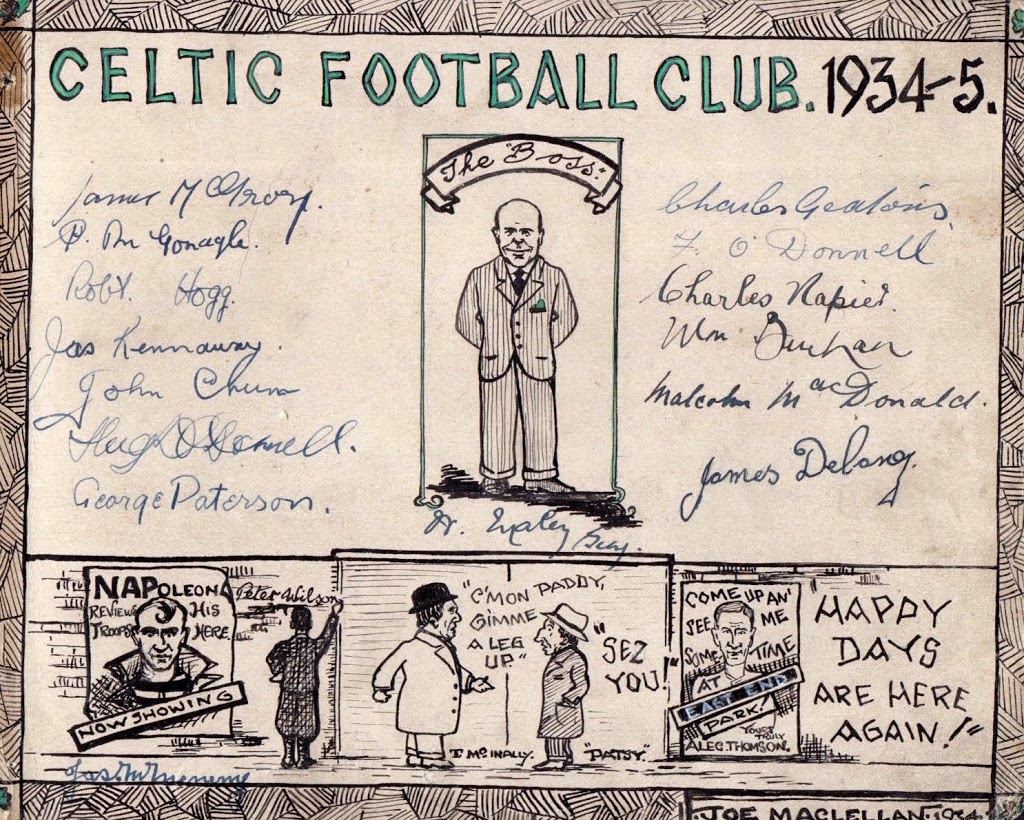 CELTIC FOOTBALL CLUB. 1934-5.
The "Boss".
James McGrory.
P. McGonagle.
Robt. Hogg.
Jas Kennaway.
John Crum
Hugh O'Donnell.
George Paterson.
Charles Geatons
F. O'Donnell
Charles Napier.
Wm Buchan
Malcolm MacDonald.
James Delaney.
W. Maley
Secy.
NAPOLEON
REVIEWS HIS
TROOPS HERE.
NOW SHOWING
Peter Wilson
"C'MON PADDY,
GIMME
A LEG
UP."
"SEZ
YOU!"
T. McINALLY.
"PATSY."
COME UP AN'
SEE ME
SOME TIME
AT
EAST END
PARK!
YOURS
TRULY
ALEC. THOMSON.
HAPPY
DAYS
ARE HERE
AGAIN!"
Jas. McMenemy
JOE MACLELLAN. 1934